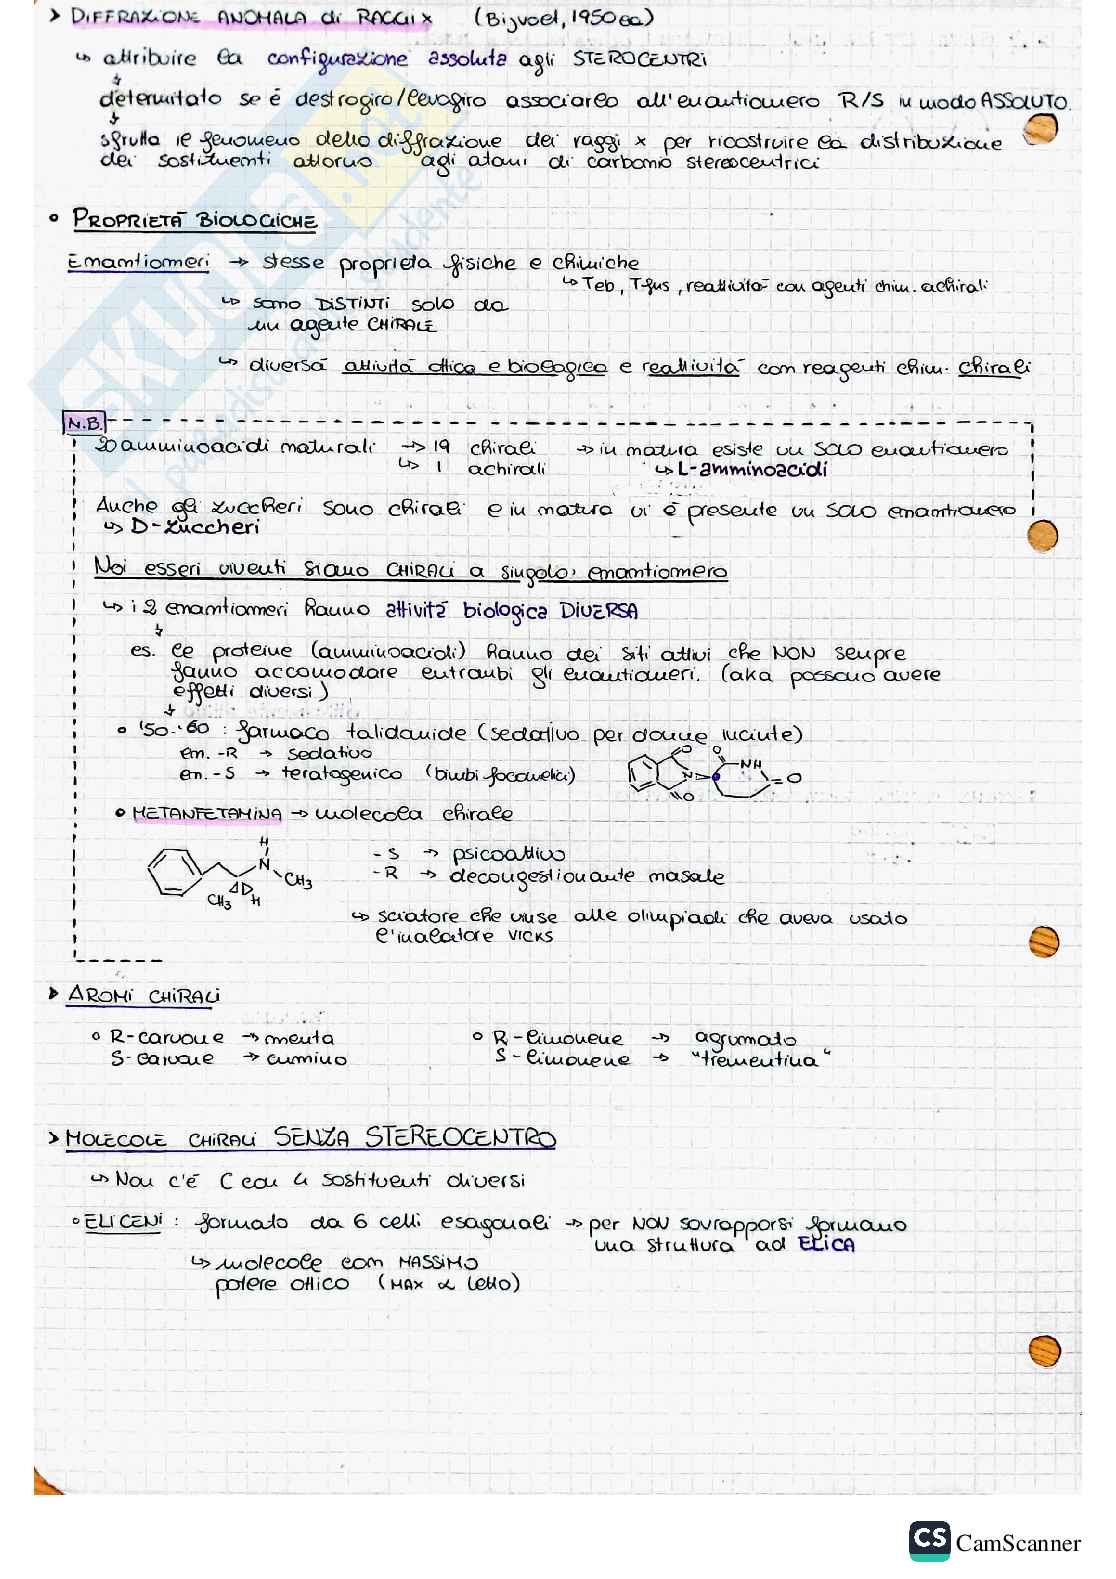 > DIFFRAZIONE ANOMALA di RAGGI x (Bijvoet, 1950ca)
↳ attribuire la configurazione assoluta agli STEROCENTRI
determitato se é destrogiro/levogiro associarlo all'enantiomero R/S in modo ASSOLUTO.
sfrutta il fenomeno della diffrazione dei raggi x per ricostruire la distribuzione
dei sostituenti attorno agli atomi di carbonio stereocentrici
• PROPRIETÀ BIOLOGICHE
Enantiomeri → stesse proprietà fisiche e chimiche
↳ Teb, Tfus, reattività con agenti chim. achirali
↳ sono DISTINTI solo da
un agente CHIRALE
↳ diversa attività ottica e biologica e reattività con reagenti chim. chirali
N.B.
20 amminoacidi naturali → 19 chirali → in natura esiste un SOLO enantiomero
↳ 1 achirali ↳ L-amminoacidi
Anche gli zuccheri sono chirali e in natura vi é presente un SOLO enantiomero
↳ D-zuccheri
Noi esseri viventi siamo CHIRALI a singolo enantiomero
↳ i 2 enantiomeri hanno attività biologica DIVERSA
es. le proteine (amminoacidi) hanno dei siti attivi che NON sempre
fanno accomodare entrambi gli enantiomeri. (aka possono avere
effetti diversi)
• '50-'60 : farmaco talidomide (sedativo per donne incinte)
en. -R → sedativo
en. -S → teratogenico (bimbi focomelici)
O O NH N O O
• METANFETAMINA → molecola chirale
H N CH3 CH3 H
- S → psicoattivo
- R → decongestionante nasale
↳ sciatore che vinse alle olimpiadi che aveva usato
l'inalatore VICKS
> AROMI CHIRALI
• R-carvone → menta • R-limonene → agrumato
S-carvone → cumino S-limonene → "trementina"
> MOLECOLE CHIRALI SENZA STEREOCENTRO
↳ Non c'é C con 4 sostituenti diversi
• ELICENI : formato da 6 celli esagonali → per NON sovrapporsi formano
una struttura ad ELICA
↳ molecole con MASSIMO
potere ottico (MAX α letto)
SKUOLA.net
CS CamScanner